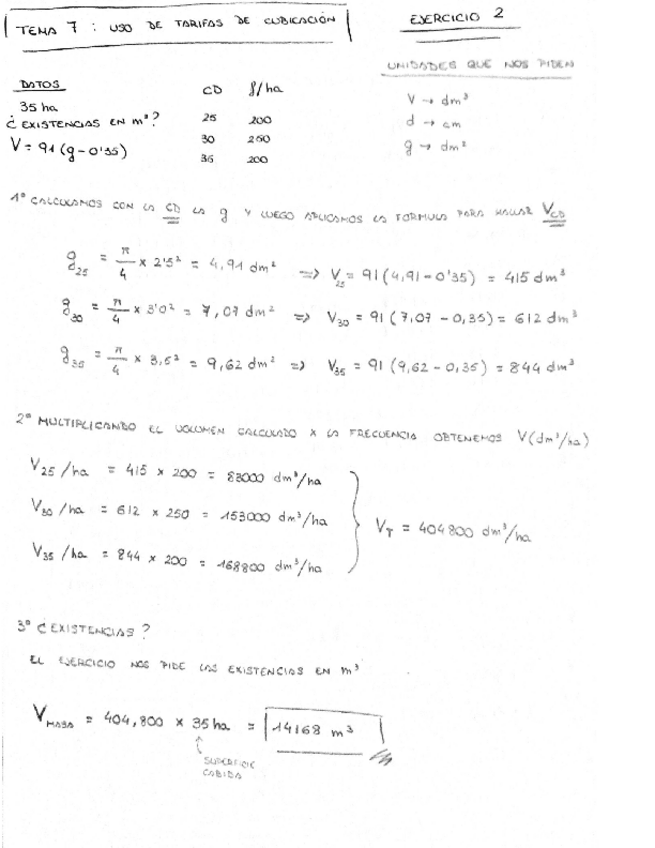 TEMA 7 : USO DE TARIFAS DE CUBICACIÓN
EJERCICIO 2
UNIDADES QUE NOS PIDEN
V → dm³
d → cm
g → dm²
DATOS
35 ha
¿ EXISTENCIAS EN m³ ?
V = 91 (g - 0'35)
CD f/ha
25 200
30 250
35 200
1º CALCULAMOS CON LA CD LA g Y LUEGO APLICAMOS LA FORMULA PARA HALLAR V_CD
g₂₅ = π/4 × 2'5² = 4,91 dm² => V₂₅ = 91 (4,91 - 0'35) = 415 dm³
g₃₀ = π/4 × 3'0² = 7,07 dm² => V₃₀ = 91 (7,07 - 0,35) = 612 dm³
g₃₅ = π/4 × 3,5² = 9,62 dm² => V₃₅ = 91 (9,62 - 0,35) = 844 dm³
2º MULTIPLICANDO EL VOLUMEN CALCULADO X LA FRECUENCIA OBTENEMOS V(dm³/ha)
V₂₅ /ha = 415 × 200 = 83000 dm³/ha
V₃₀ /ha = 612 × 250 = 153000 dm³/ha
V₃₅ /ha = 844 × 200 = 168800 dm³/ha
V_T = 404800 dm³/ha
3º ¿ EXISTENCIAS ?
EL EJERCICIO NOS PIDE LAS EXISTENCIAS EN m³
V_MASA = 404,800 × 35 ha = 14168 m³
SUPERFICIE
CABIDA